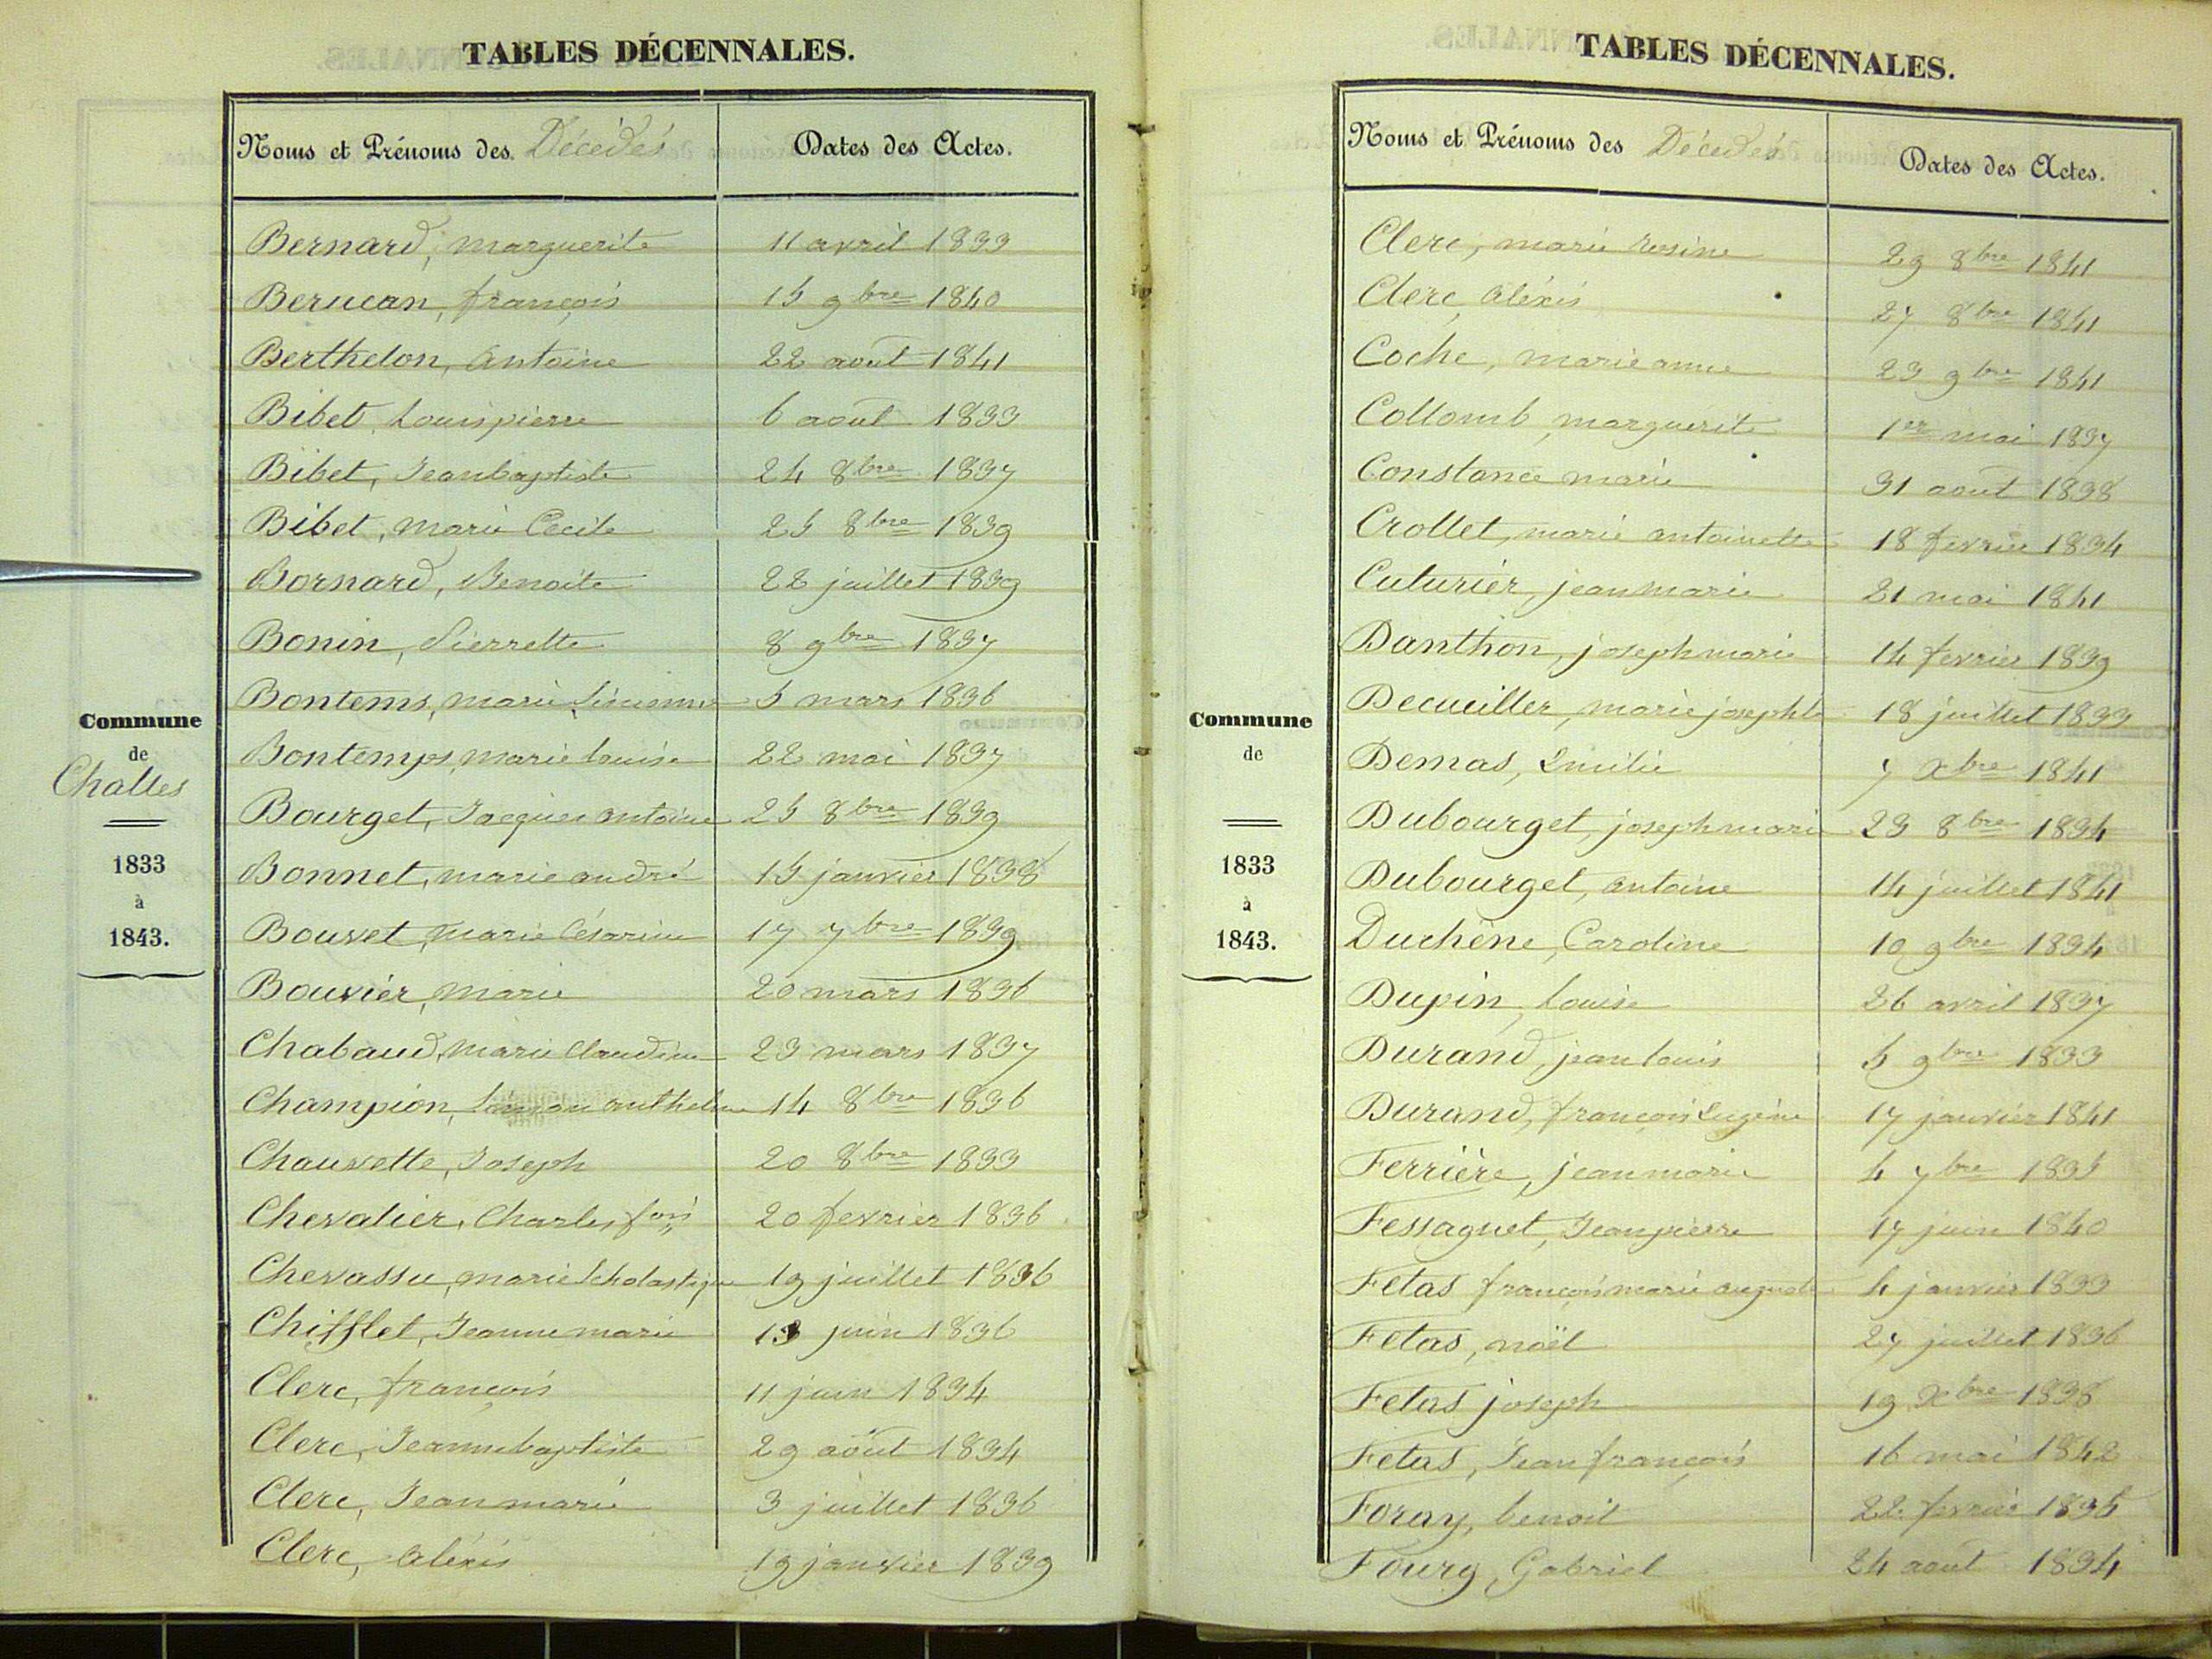 TABLES DÉCENNALES.
Noms et Prénoms des Décédés Dates des Actes.
Bernard, marguerite 11 avril 1833
Berucan, françois 15 9bre 1840
Berthelon, antoine 22 aout 1841
Bibet, Louis pierre 6 aout 1833
Bibet, Jeanbaptiste 24 8bre 1837
Bibet, marie Cecile 25 8bre 1839
Bornard, Benoite 22 juillet 1839
Bonin, Pierrette 8 9bre 1837
Bontems, marie 5 mars 1836
Bontemps, marie louise 22 mai 1837
Bourget, Jacques antoine 25 8bre 1839
Bonnet, marie andré 15 janvier 1838
Bouvet, marie Césarine 17 7bre 1839
Bouvier, marie 20 mars 1836
Chabaud, marie Claudine 23 mars 1837
Champion, anthelme 14 8bre 1836
Chauvette, Joseph 20 8bre 1833
Chevalier, Charles fois 20 fevrier 1836
Chevassu, marie Scholastique 19 juillet 1836
Chifflet, Jeanne marie 13 juin 1836
Clerc, françois 11 juin 1834
Clerc, Jeannebaptiste 29 aout 1834
Clerc, Jean marie 3 juillet 1836
Clerc, aléxis 19 janvier 1839
Commune
de
Challes
1833
à
1843.
TABLES DÉCENNALES.
Noms et Prénoms des Décédés Dates des Actes.
Clerc, marie rosine 29 8bre 1841
Clerc, aléxis 27 8bre 1841
Coche, marie anne 23 9bre 1841
Collomb, marguerite 1er mai 1837
Constance marie 31 aout 1838
Crollet, marie antoinette 18 fevrier 1834
Cuturier, jean marie 21 mai 1841
Danthon, joseph marie 14 fevrier 1839
Decueiller, marie josephte 18 juillet 1833
Demas, Emilie 7 Xbre 1841
Dubourget, joseph marie 23 8bre 1834
Dubourget, antoine 14 juillet 1841
Duchêne, Caroline 10 9bre 1834
Dupin, Louise 26 avril 1837
Durand, jean louis 5 9bre 1833
Durand, françois Eugène 17 janvier 1841
Ferrière, jean marie 4 7bre 1835
Fessaguet, Jean pierre 17 juin 1840
Fetas françois marie auguste 4 janvier 1833
Fetas, noël 27 juillet 1836
Fetas joseph 19 Xbre 1838
Fetas, Jean françois 16 mai 1842
Foray, benoit 22 fevrier 1835
Fourg, Gabriel 24 aout 1834
Commune
de
1833
à
1843.